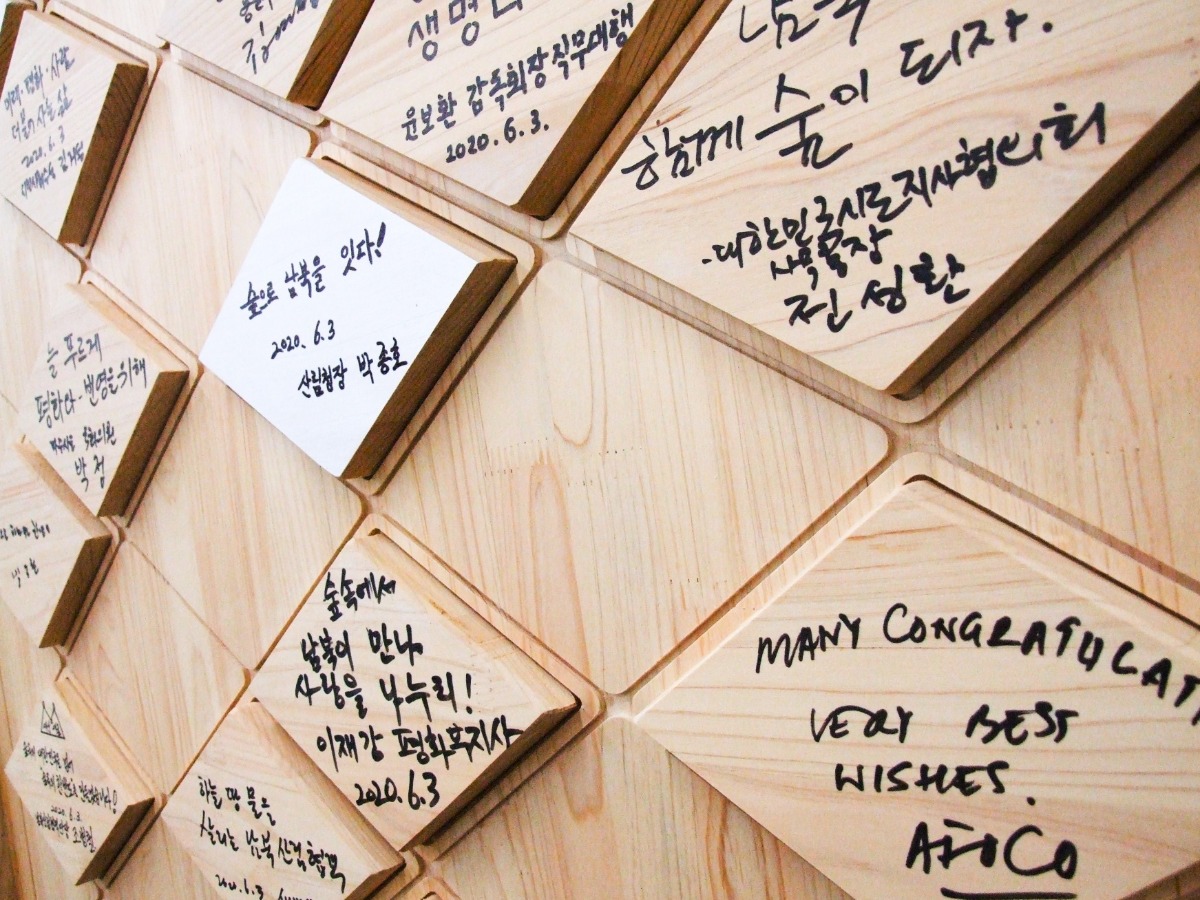 생명
윤보환 감독회장 직무대행
2020.6.3.
남북
함께 숲이 되자.
대한민국시도지사협의회
사무총장
진성환
더불어 사는 삶
2020.6.3
숲으로 남북을 잇다!
2020.6.3
산림청장 박종호
늘 푸르게
평화다-번영을 위해
국회의원
박정
숲속에서
남북이 만나
사랑을 나누리!
이재강 평화부지사
2020.6.3
하늘 땅 물을
살리는 남북산림협력
2020.6.3
MANY CONGRATULAT
VERY BEST
WISHES.
AFoCO